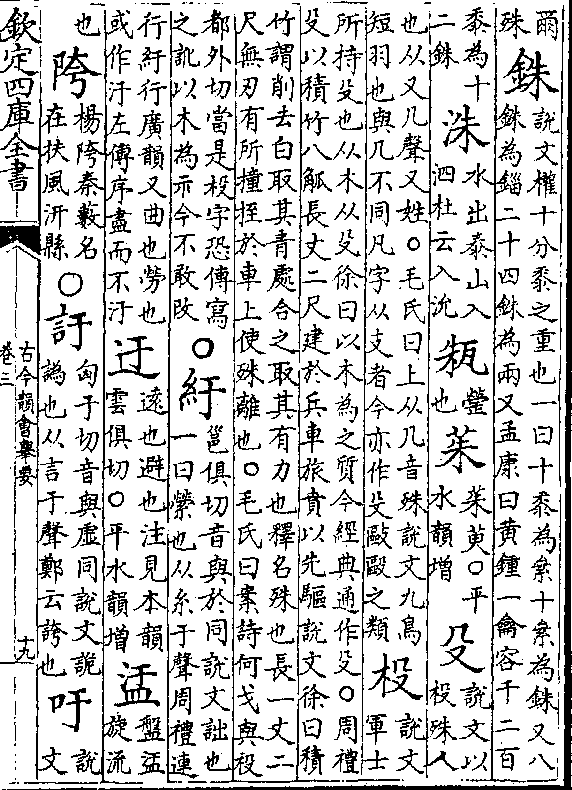 爾
殊
銖
說文權十分黍之重也一曰十黍為絫十絫為銖又八
銖為錙二十四銖為兩又孟康曰黃鍾一龠容千二百
黍為十
二銖
洙
水出泰山入
泗杜云入沇
瑩
也
茱
茱萸○平
水韻增
殳
說文以
杸殊人
也从又几聲又姓○毛氏曰上从几音殊說文九鳥
短羽也與几不同凡字从支者今亦作殳敺毆之類
杸
說文
軍士
所持殳也从木从殳徐曰以木為之質今經典通作殳○周禮
殳以積竹八觚長丈二尺建於兵車旅賁以先驅說文徐曰積
竹謂削去白取其青處合之取其有力也釋名殊也長一丈二
尺無刃有所撞挃於車上使殊離也○毛氏曰案詩何戈與杸
都外切當是杸字恐傳寫
之訛以木為示今不敢改
○紆
邕俱切音與於同說文詘也
一曰縈也从糸于聲周禮連
行紆行廣韻又曲也勞也
或作汙左傳序盡而不汙
迂
遠也避也注見本韻
雲俱切○平水韻增
盓
盤盓
旋流
也
陓
楊陓秦藪名
在扶風汧縣
○訏
匈于切音與虛同說文說
譌也从言于聲鄭云誇也
吁
說
文
欽定四庫全書
古今韻會舉要
卷三
十九